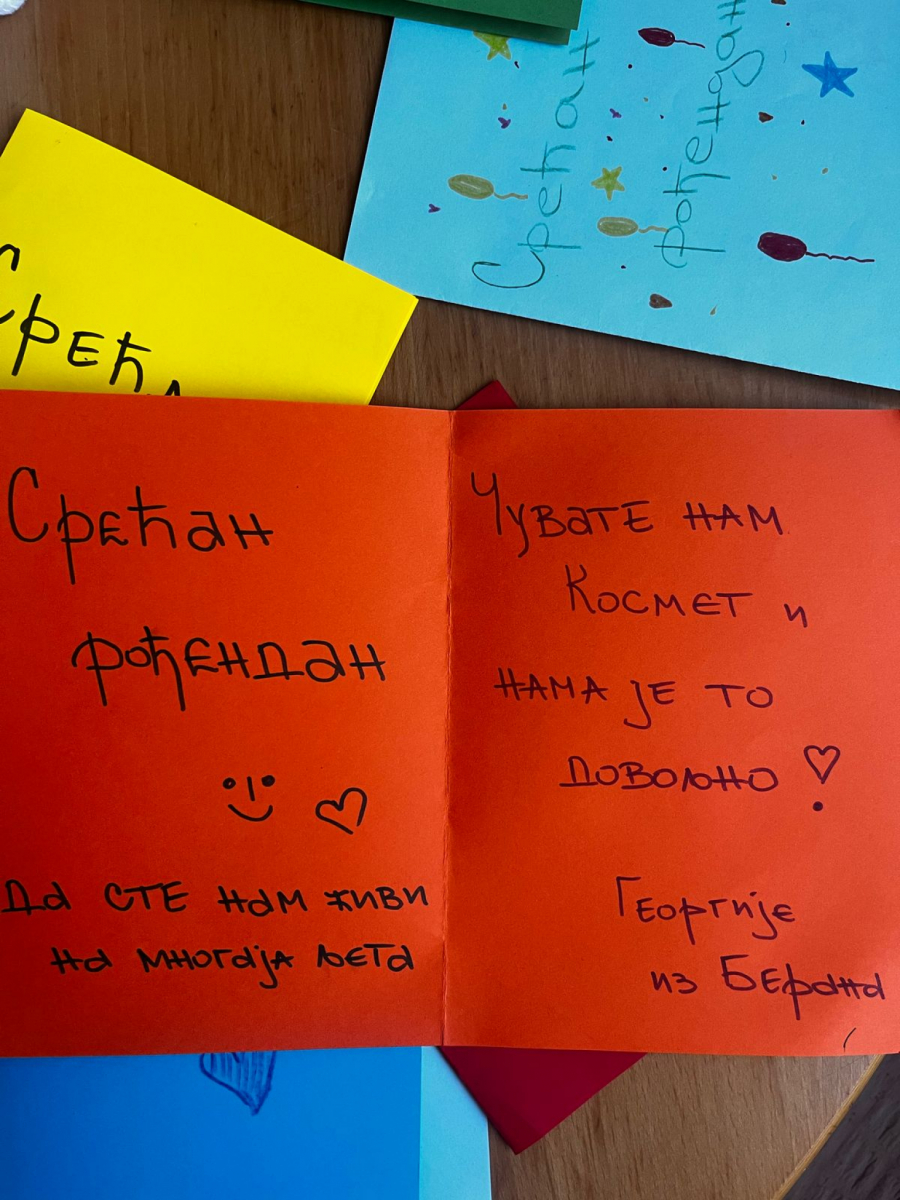 Срећан
рођендан
Срећ
Срећан
рођендан
Да сте нам живи
на многаја љета
Чувате нам
Космет и
нама је то
довољно
Георгије
из Берана